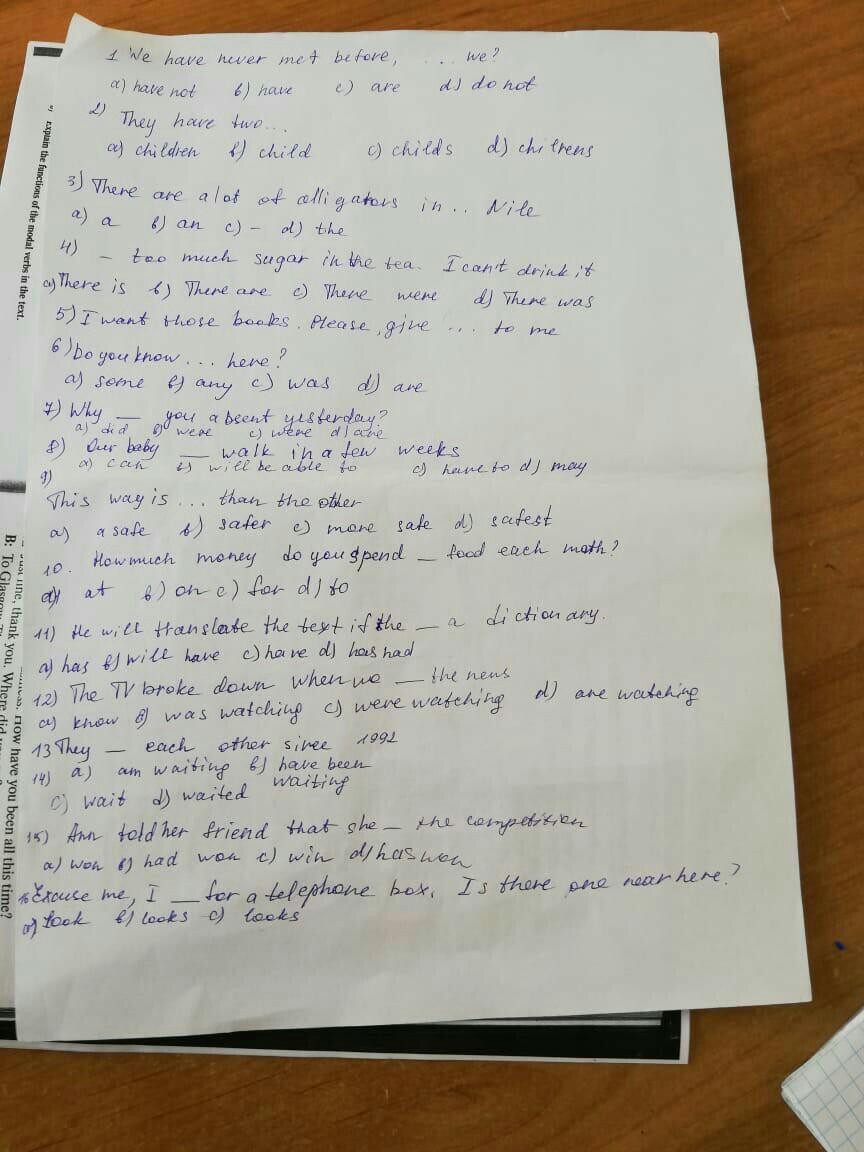 1 We have never met before, ... we?
a) have not b) have c) are d) do not
2) They have two...
a) children b) child c) childs d) chitrens
3) There are a lot of alligators in .. Nile
a) a b) an c) - d) the
4) - too much sugar in the tea. I can't drink it
a) There is b) There are c) There were d) There was
5) I want those books. Please, give ... to me
6) Do you know ... here?
a) some b) any c) was d) are
7) Why __ you absent yesterday?
a) did b) were c) were d) are
8) Our baby __ walk in a few weeks
a) can b) will be able to c) have to d) may
9)
This way is ... than the other
a) a safe b) safer c) more safe d) safest
10. How much money do you spend _ food each moth?
a) at b) on c) for d) to
11) He will translate the text if the _ a dictionary.
a) has b) will have c) have d) has had
12) The TV broke down when we _ the news
a) know b) was watching c) were watching d) are watching
13 They _ each other since 1992
14) a) am waiting b) have been waiting
c) wait d) waited
15) Ann told her friend that she _ the competition
a) won b) had won c) win d) has won
16 Excuse me, I __ for a telephone box. Is there one near here?
a) Look b) looks c) looks
explain the functions of the modal verbs in the text.
time, thank you. How have you been all this time?
B: To Glasgow. Where did